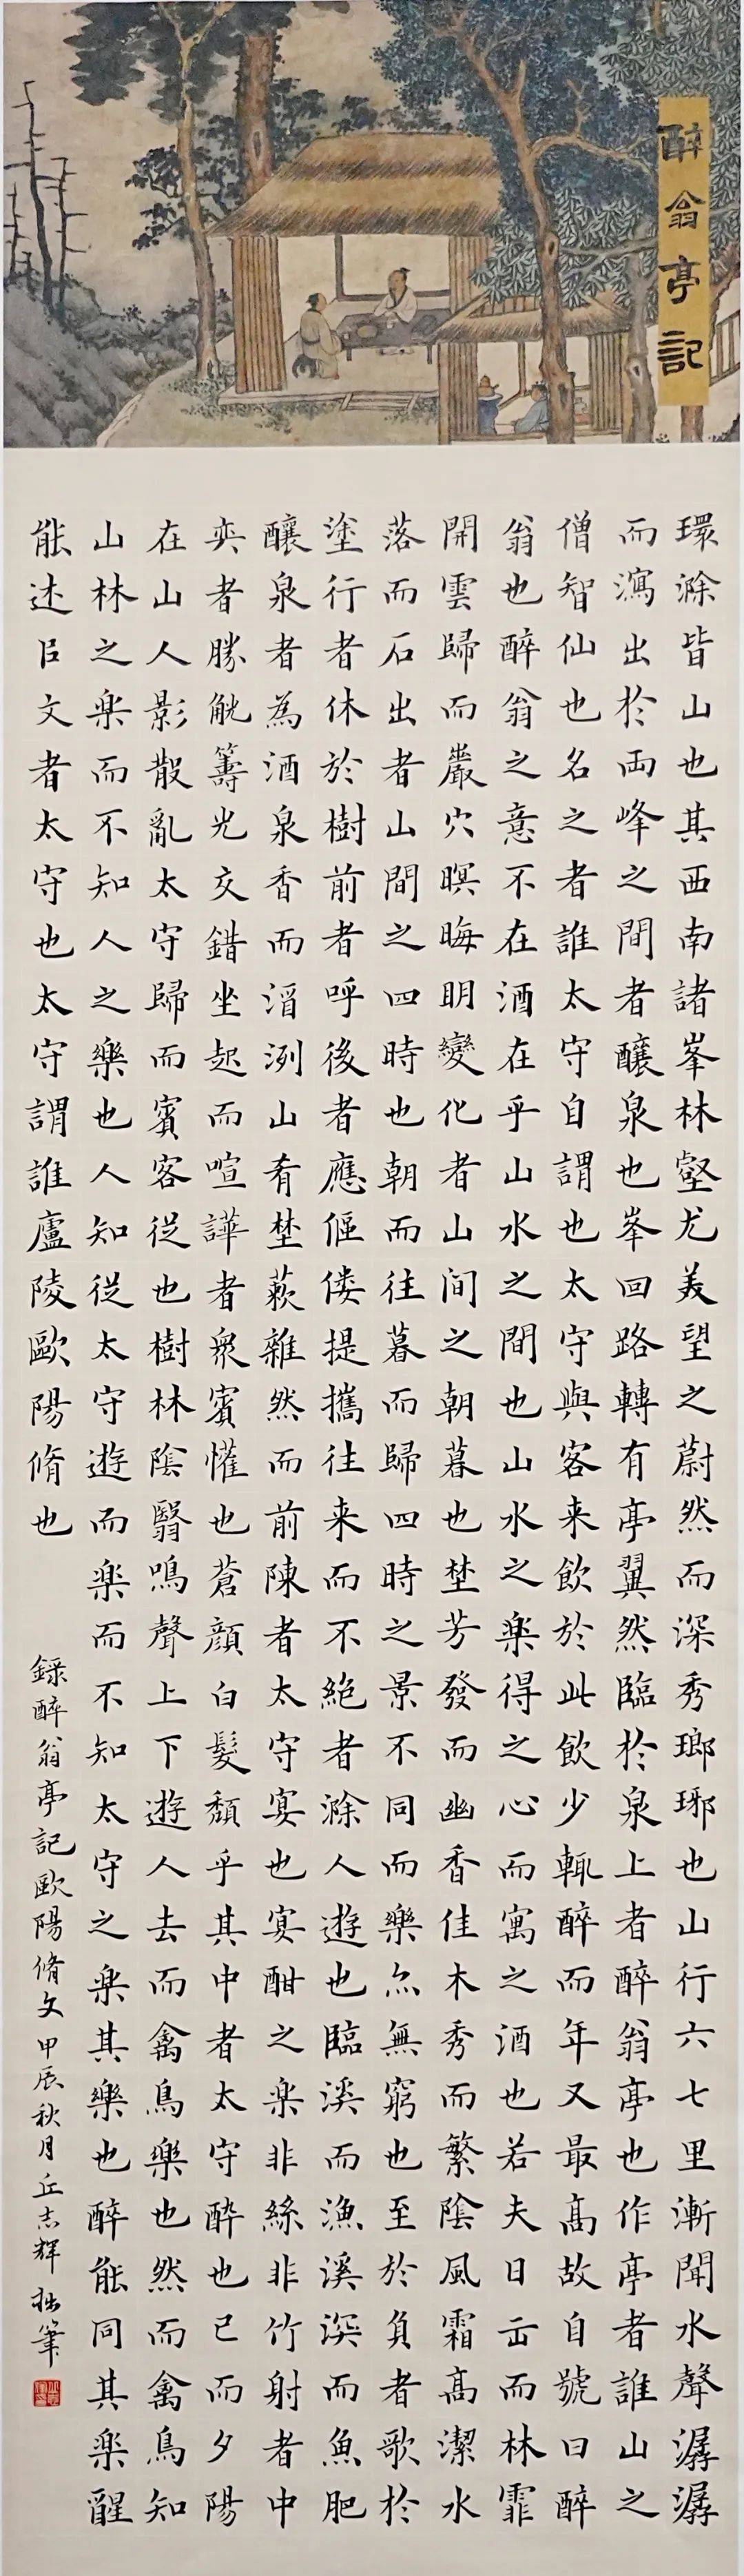 醉翁亭記
環滁皆山也其西南諸峯林壑尤美望之蔚然而深秀瑯琊也山行六七里漸聞水聲潺潺
而瀉出於兩峰之間者釀泉也峯回路轉有亭翼然臨於泉上者醉翁亭也作亭者誰山之
僧智仙也名之者誰太守自謂也太守與客来飲於此飲少輒醉而年又最高故自號曰醉
翁也醉翁之意不在酒在乎山水之間也山水之楽得之心而寓之酒也若夫日出而林霏
開雲歸而巖穴暝晦明變化者山间之朝暮也埜芳發而幽香佳木秀而繁陰風霜高潔水
落而石出者山間之四時也朝而往暮而歸四時之景不同而樂亦無窮也至於負者歌於
塗行者休於樹前者呼後者應傴僂提攜往来而不絕者滁人遊也臨溪而漁溪深而魚肥
釀泉者為酒泉香而洌山肴埜蔌雜然而前陳者太守宴也宴酣之楽非絲非竹射者中
奕者勝觥籌光交錯坐起而喧譁者衆賓懽也蒼顔白髮頹乎其中者太守酔也已而夕陽
在山人影散亂太守歸而賓客従也樹林陰翳鳴聲上下遊人去而禽鳥樂也然而禽鳥知
山林之楽而不知人之樂也人知従太守遊而楽而不知太守之楽其樂也醉能同其楽醒
能述㠯文者太守也太守謂誰廬陵歐陽脩也
錄醉翁亭記歐陽脩文甲辰秋月丘志輝拙筆